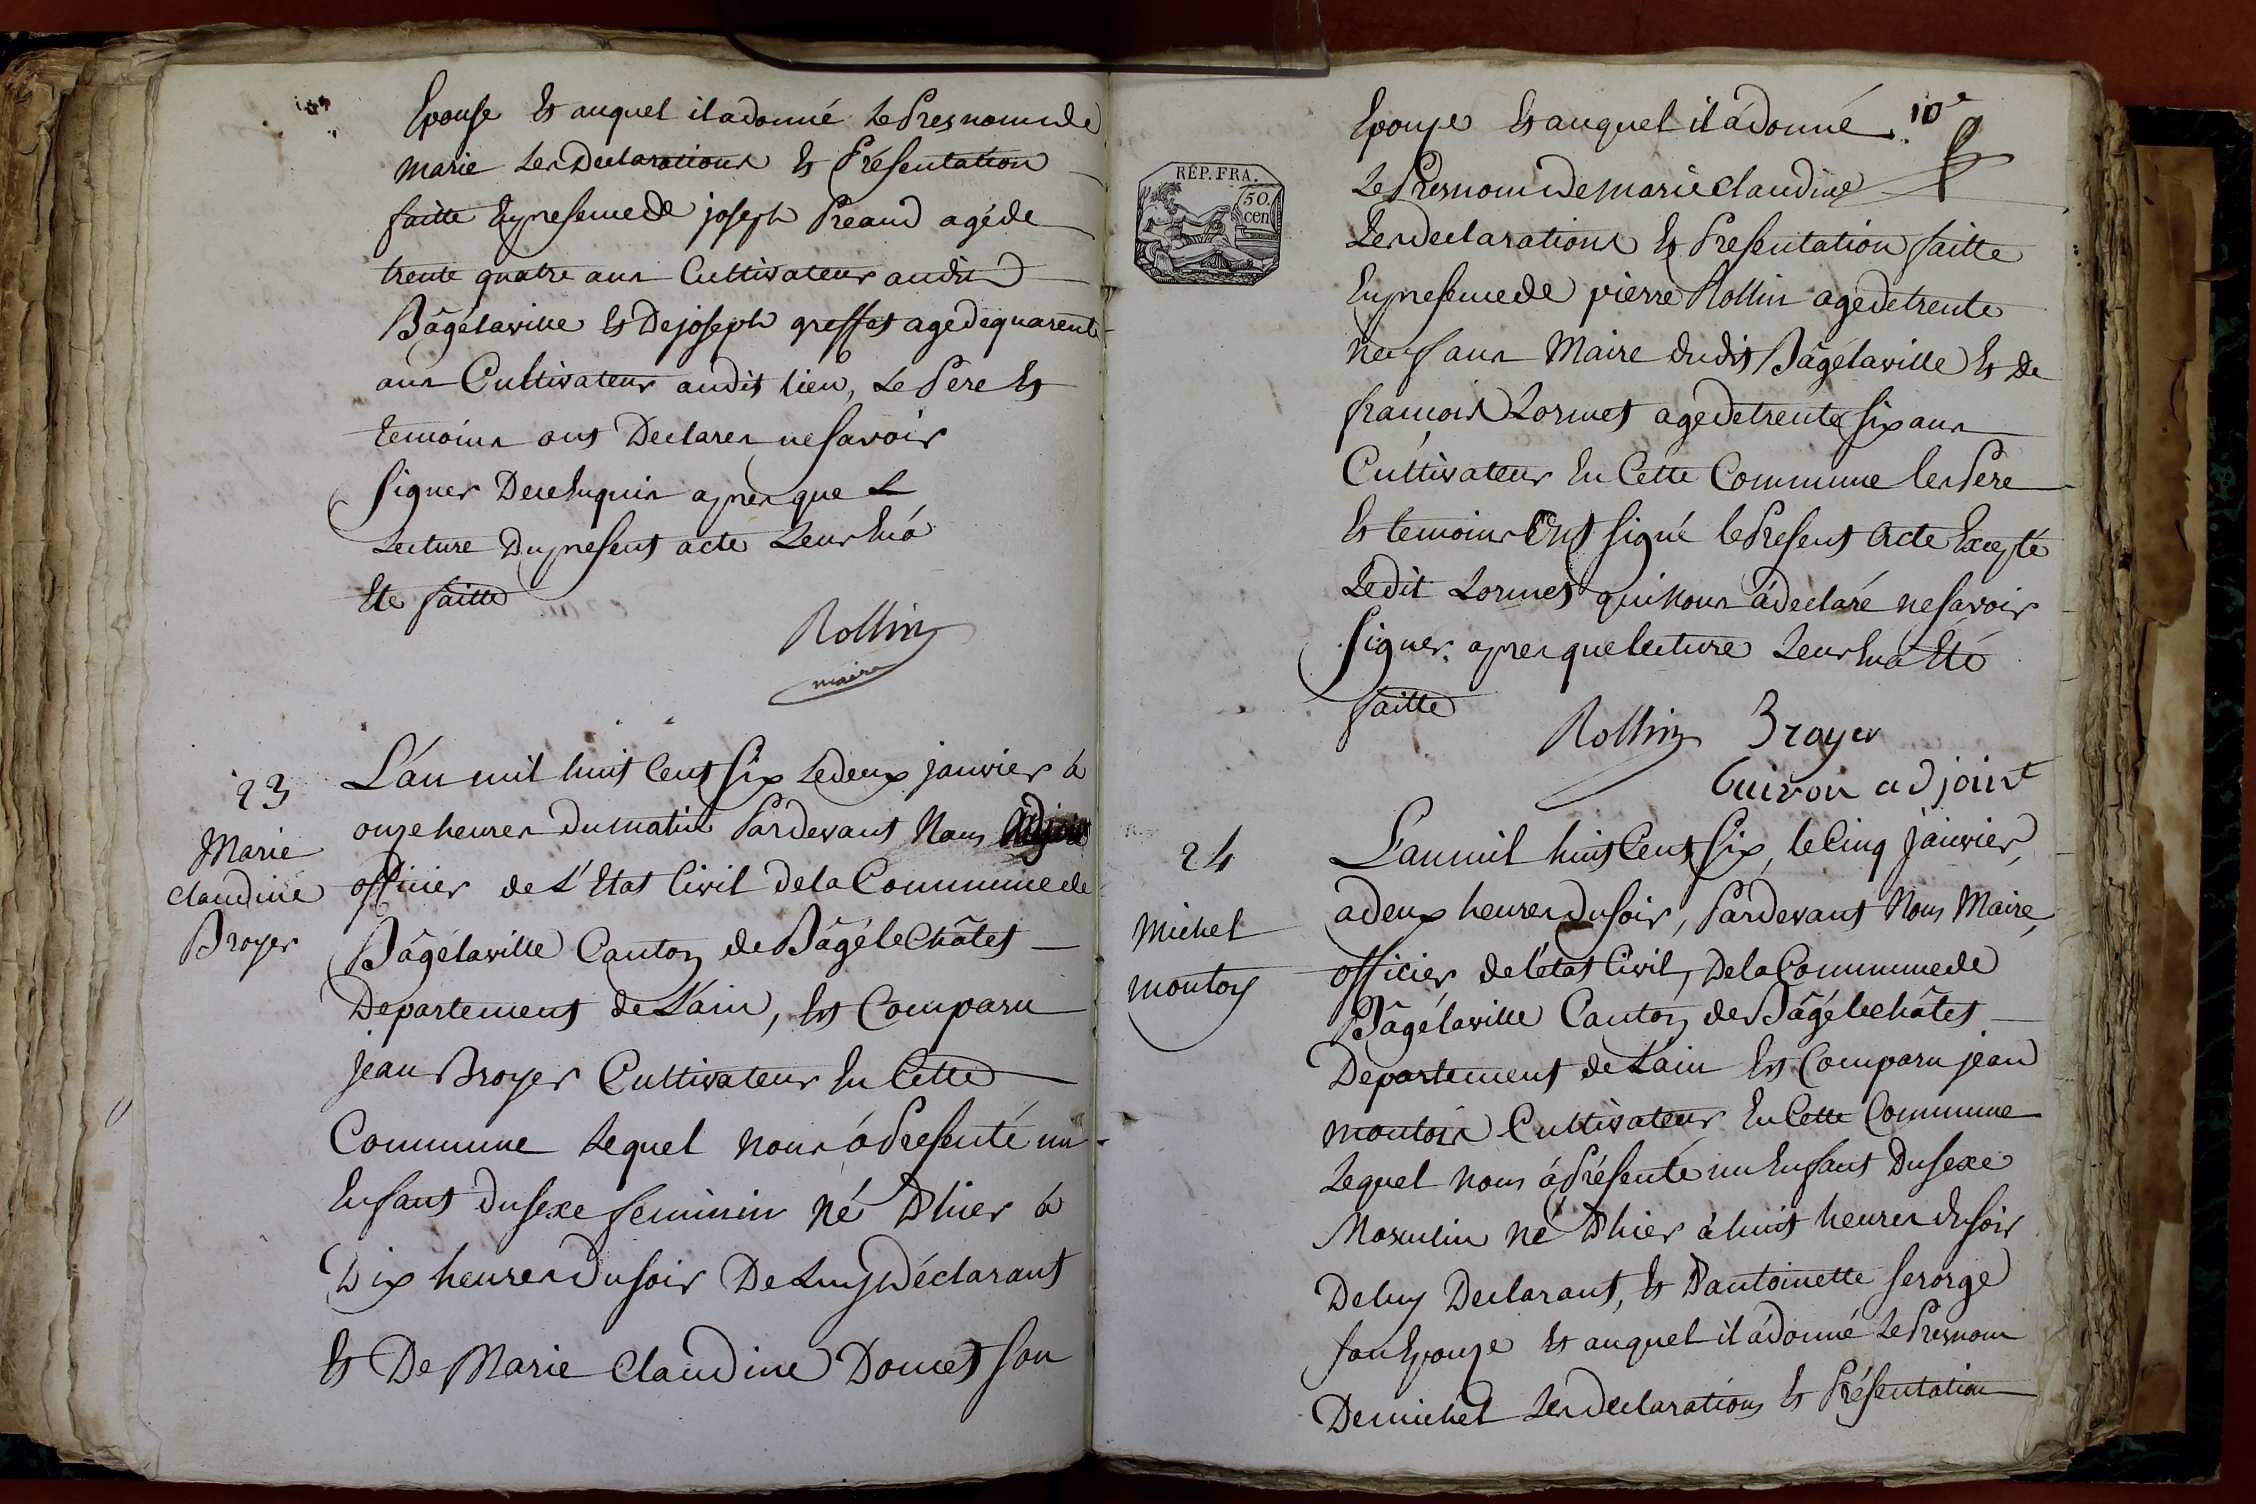 Epouse Et auquel il a donné Le Presnom de
marie Les Declarations Et Présentation
faitte En presence de joseph Preaud agé de
trente quatre ans Cultivateur audit
Bâgélaville Et De joseph greffet agé de quarente
ans Cultivateur audit lieu, Le Pere Et
temoins ont Declares ne savoir
signer De ce Enquis apres que L
Lecture Du present acte Leur En á
Ete faitte
Rollin
maire
23
Marie
claudine
Broyer
L'án mil huit Cent Six Le deux janvier à
onze heures Du matin Pardevant Nous
officier de L'Etat Civil de la Commune de
Bâgélaville Canton de Bâgé le Châtet
Departement de L'ain, Est Comparu
jean Broyer Cultivateur En Cette
Commune Lequel nous á Presenté un
Enfant Du sexe feminin Né D'hier á
Dix heures Du soir De Luy Déclarant
Et De Marie Claudine Doucet Son
10e
Epouze Et auquel il á donné
Le Presnom de marie Claudine
Les declarations Et Presentation faitte
En presence de pierre Rollin agé de trente
neuf ans Maire dudit Bâgélaville Et de
françois Lormet agé de trente six ans
Cultivateur En Cette Commune les Pere
Et temoins Ont signé le Present Acte Excepté
Ledit Lormet qui Nous á declaré ne savoir
signer. apres que lecture Leur En á Eté
faitte
Rollin Broyer
Guivon adjoint
RÉP. FRA.
50.
cen
24
Michel
montoy
L'an mil huit Cent Six, le Cinq Janvier,
a deux heures Du soir, Pardevant Nous Maire,
officier de l'état Civil, De la Commune de
Bâgélaville Canton de Bâgé le châtet
Departement de L'ain Est Comparu jean
montoir Cultivateur En Cette Commune
Lequel Nous á Présenté un Enfant Du sexe
Masculin né D'hier à huit heures du soir
De luy Declarant, Et D'antoinette serorge
son Epouze Et auquel il á donné Le Presnom
De michel Les declarations Et Présentation